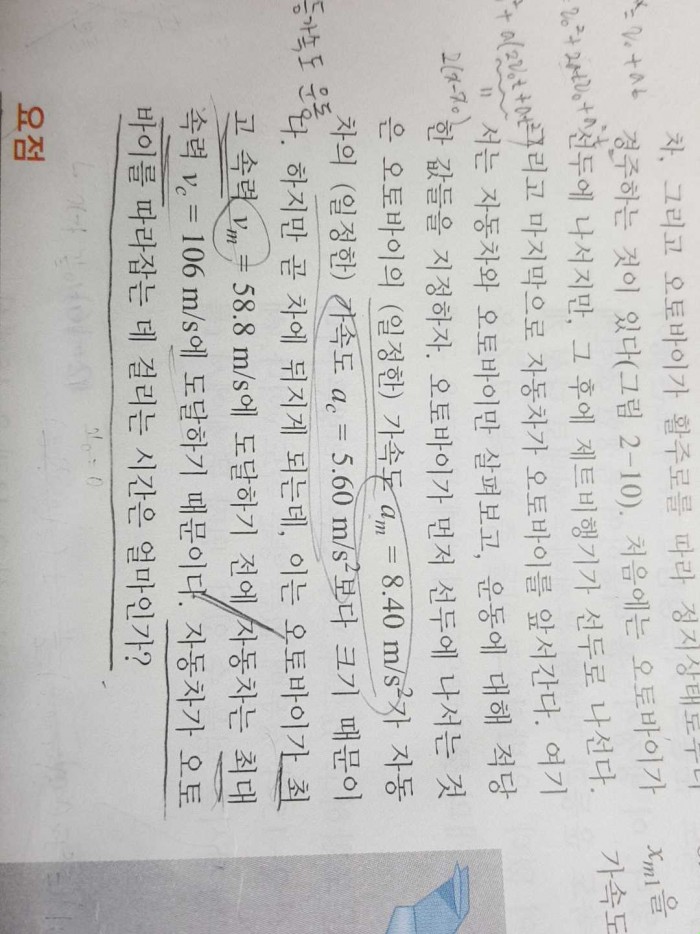 차, 그리고 오토바이가 활주로를 따라 정지상태로부터
경주하는 것이 있다(그림 2-10). 처음에는 오토바이가
선두에 나서지만, 그 후에 제트비행기가 선두로 나선다.
그리고 마지막으로 자동차가 오토바이를 앞서간다. 여기
서는 자동차와 오토바이만 살펴보고, 운동에 대해 적당
한 값들을 지정하자. 오토바이가 먼저 선두에 나서는 것
은 오토바이의 (일정한) 가속도 aₘ = 8.40 m/s²가 자동
차의 (일정한) 가속도 a_c = 5.60 m/s²보다 크기 때문이
다. 하지만 곧 차에 뒤지게 되는데, 이는 오토바이가 최
고 속력 vₘ = 58.8 m/s에 도달하기 전에 자동차는 최대
속력 v_c = 106 m/s에 도달하기 때문이다. 자동차가 오토
바이를 따라잡는 데 걸리는 시간은 얼마인가?
요점
xₘ₁을
가속도
= v₀ + at
2(x-x₀)
등가속도 운동